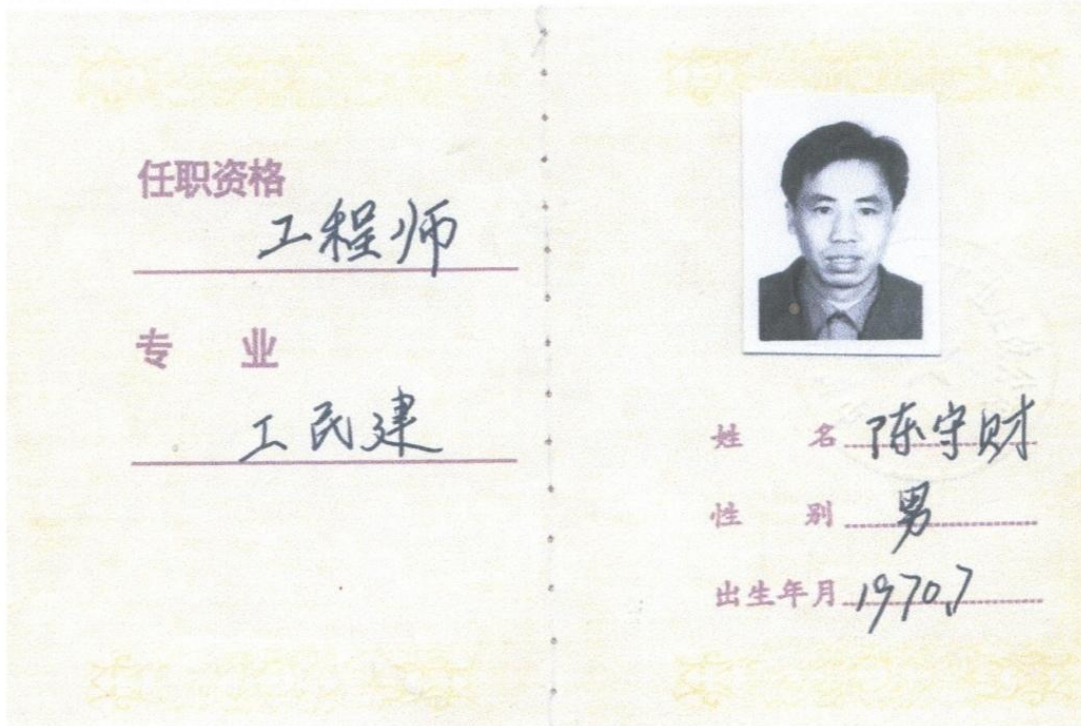 任职资格
工程师
专 业
工民建
姓 名 陈守财
性 别 男
出生年月 1970.7